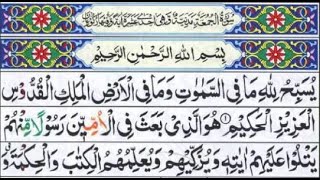 سُوْرَةُ الْجُمُعَةِ مَدَنِيَّةٌ وَّهِيَ اِحْدٰى عَشْرَةَ اٰيَةً
بِسْمِ اللّٰهِ الرَّحْمٰنِ الرَّحِيْمِ
يُسَبِّحُ لِلّٰهِ مَا فِى السَّمٰوٰتِ وَمَا فِى الْاَرْضِ الْمَلِكِ الْقُدُّوْسِ
الْعَزِيْزِ الْحَكِيْمِ ۝۱ هُوَ الَّذِىْ بَعَثَ فِى الْاُمِّيّٖنَ رَسُوْلًا مِّنْهُمْ
يَتْلُوْا عَلَيْهِمْ اٰيٰتِهٖ وَيُزَكِّيْهِمْ وَيُعَلِّمُهُمُ الْكِتٰبَ وَالْحِكْمَةَ